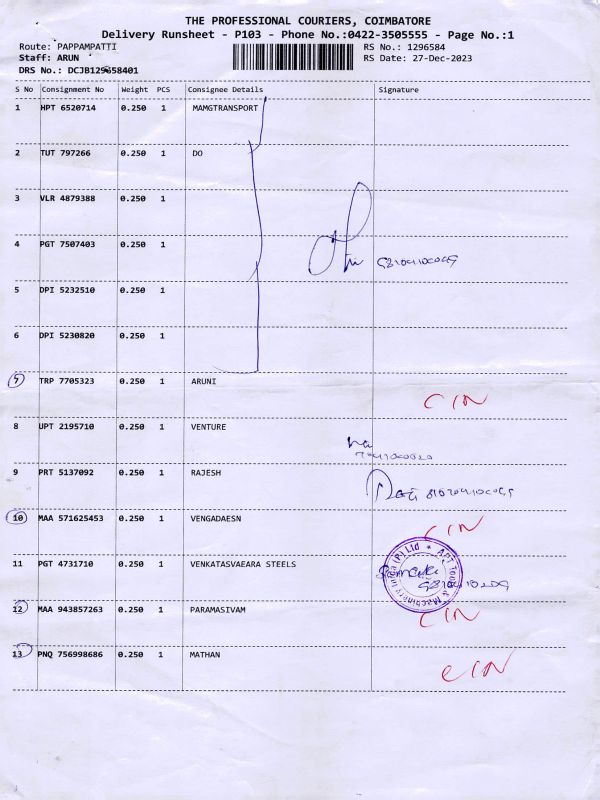 THE PROFESSIONAL COURIERS, COIMBATORE
Delivery Runsheet - P103 - Phone No.:0422-3505555 - Page No.:1
Route: PAPPAMPATTI RS No.: 1296584
Staff: ARUN RS Date: 27-Dec-2023
DRS No.:
S No Consignment No Weight PCS Consignee Details Signature
1 HPT 6520714 0.250 1 MAMGTRANSPORT
2 TUT 797266 0.250 1 DO
3 VLR 4879388 0.250 1
4 PGT 7507403 0.250 1
5 DPI 5232510 0.250 1
6 DPI 5230820 0.250 1
7 TRP 7705323 0.250 1 ARUNI CIN
8 UPT 2195710 0.250 1 VENTURE
9 PRT 5137092 0.250 1 RAJESH
10 MAA 571625453 0.250 1 VENGADAESN CIN
11 PGT 4731710 0.250 1 VENKATASVAEARA STEELS
12 MAA 943857263 0.250 1 PARAMASIVAM CIN
13 PNQ 756998686 0.250 1 MATHAN CIN